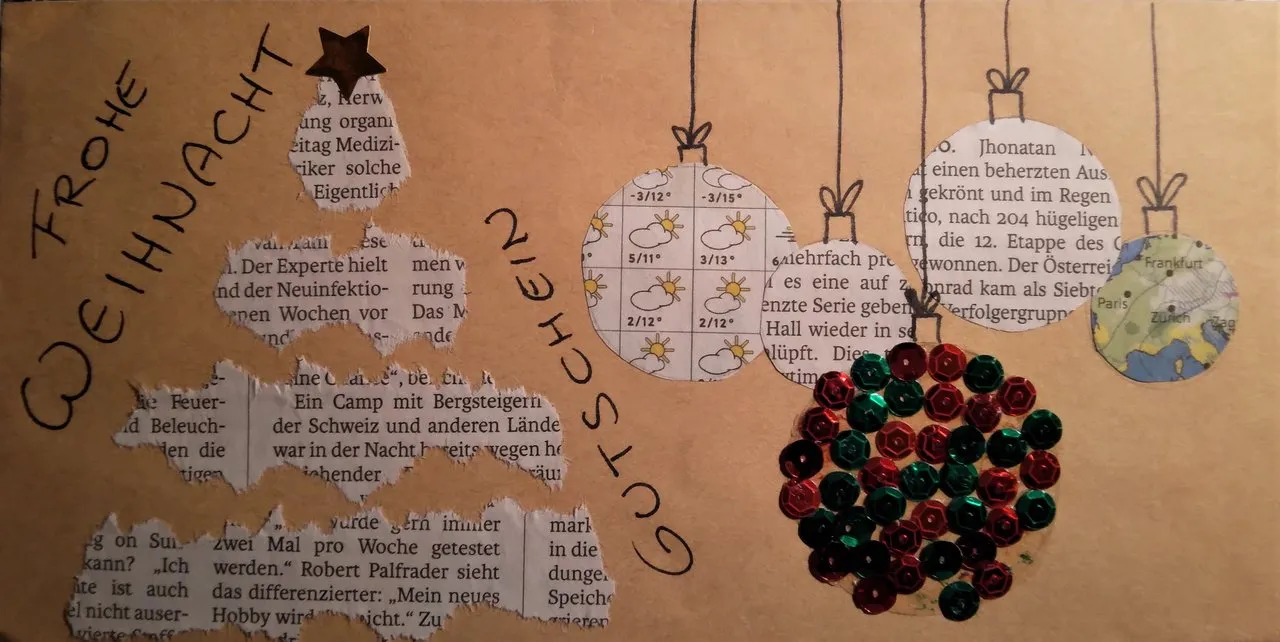 FROHE
WEIHNACHT
GUTSCHEIN
ung organi
eitag Medizi-
riker solche
Eigentlich
. Der Experte hielt
nd der Neuinfektio-
enen Wochen vor
men
rung
Das M
Feuer-
Beleuch-
den die
tigen
Ein Camp mit Bergsteigern
der Schweiz und anderen Lände
war in der Nacht bereits wegen he
wurde gern immer
zwei Mal pro Woche getestet
werden.“ Robert Palfrader sieht
das differenzierter: „Mein neues
Hobby wird
Zu
g on Sun-
kann? „Ich
ist auch
el nicht auser-
mark
in die
dunge
Speich
-3/12°
-3/15°
5/11°
3/13°
6
2/12°
2/12°
mehrfach pro
es eine auf z
enzte Serie geben
Hall wieder in se
lüpft. Dies
o. Jhonatan N
t einen beherzten Aus
gekrönt und im Regen
tico, nach 204 hügeligen
rn, die 12. Etappe des G
gewonnen. Der Österrei
onrad kam als Siebte
Verfolgergruppe
Frankfurt
Paris
Zürich
Zag